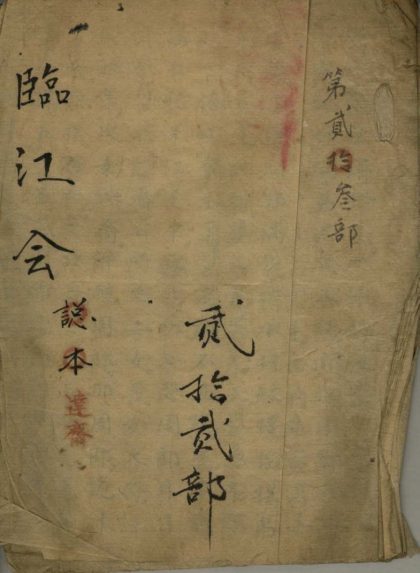 第貳拾叁部
貳拾貳部
臨江会
説本達齋